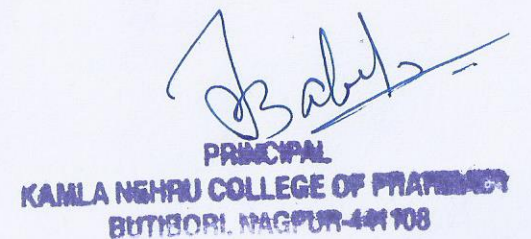 PRINCIPAL
KAMLA NEHRU COLLEGE OF
BUTIBORI, NAGPUR-441108